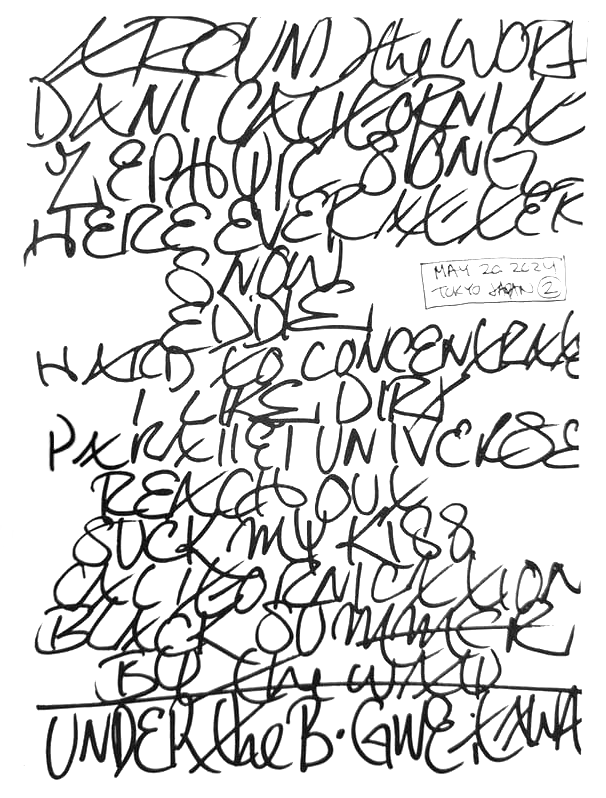 AROUND the WORL
DANI CALIFORNIA
ZEPHYR SONG
HERE EVER AFTER
SNOW
MAY 20 2024
TOKYO JAPAN ②
EDDIE
HARD TO CONCENTRATE
I LIKE DIRT
PARALLEL UNIVERSE
REACH OUT
SUCK MY KISS
CALIFORNICATION
BLACK SUMMER
BY the WAY
UNDER the B · GIVE it AWA